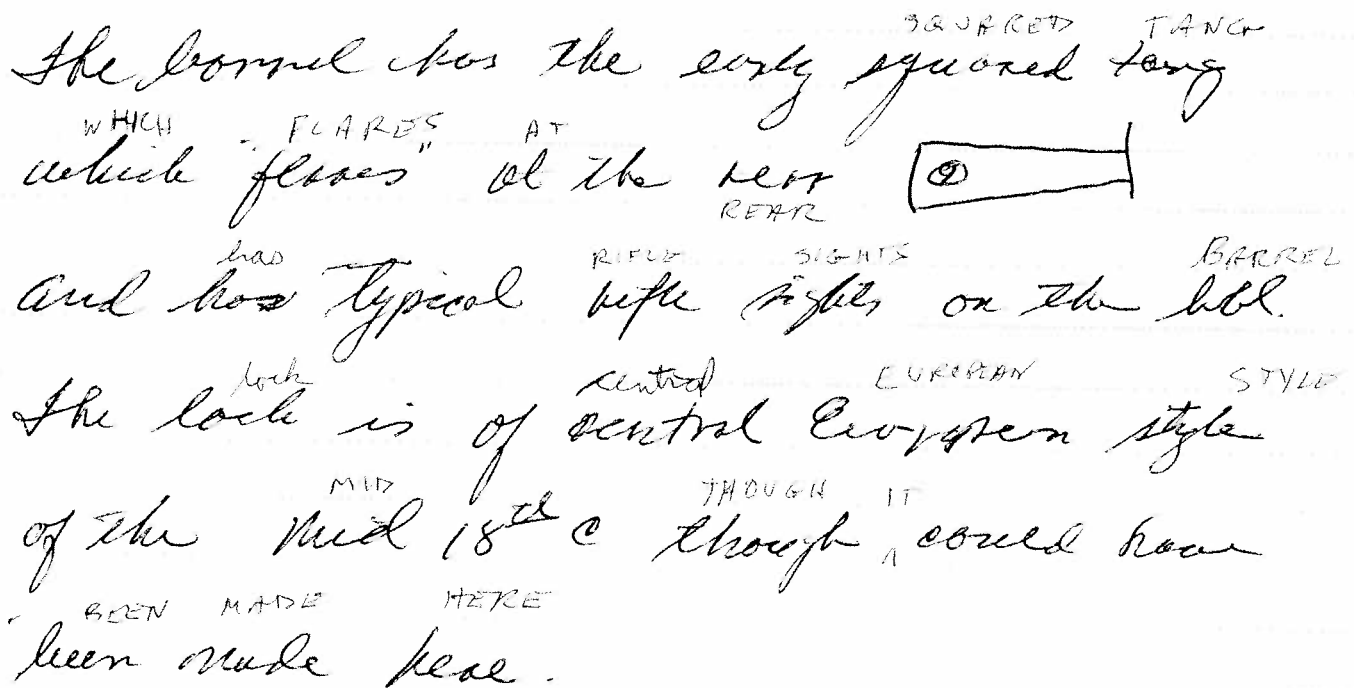 SQUARED TANG
The barrel has the early squared tang
WHICH "FLARES AT
which "flares" at the rear
REAR
has RIFLE SIGHTS BARREL
and has typical rifle sights on the bbl.
lock central EUROPEAN STYLE
The lock is of central European style
MID THOUGH IT
of the mid 18th C though ^ could have
BEEN MADE HERE
been made here.